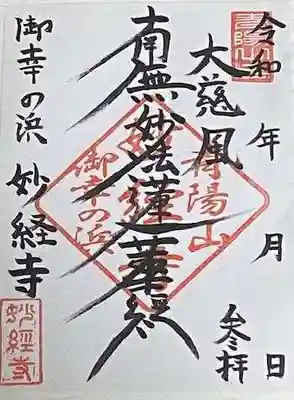 令和 年 月 日
参拝
大慈風
南無妙法蓮華経
御幸の浜 妙経寺
陽山
御幸の浜
妙経寺